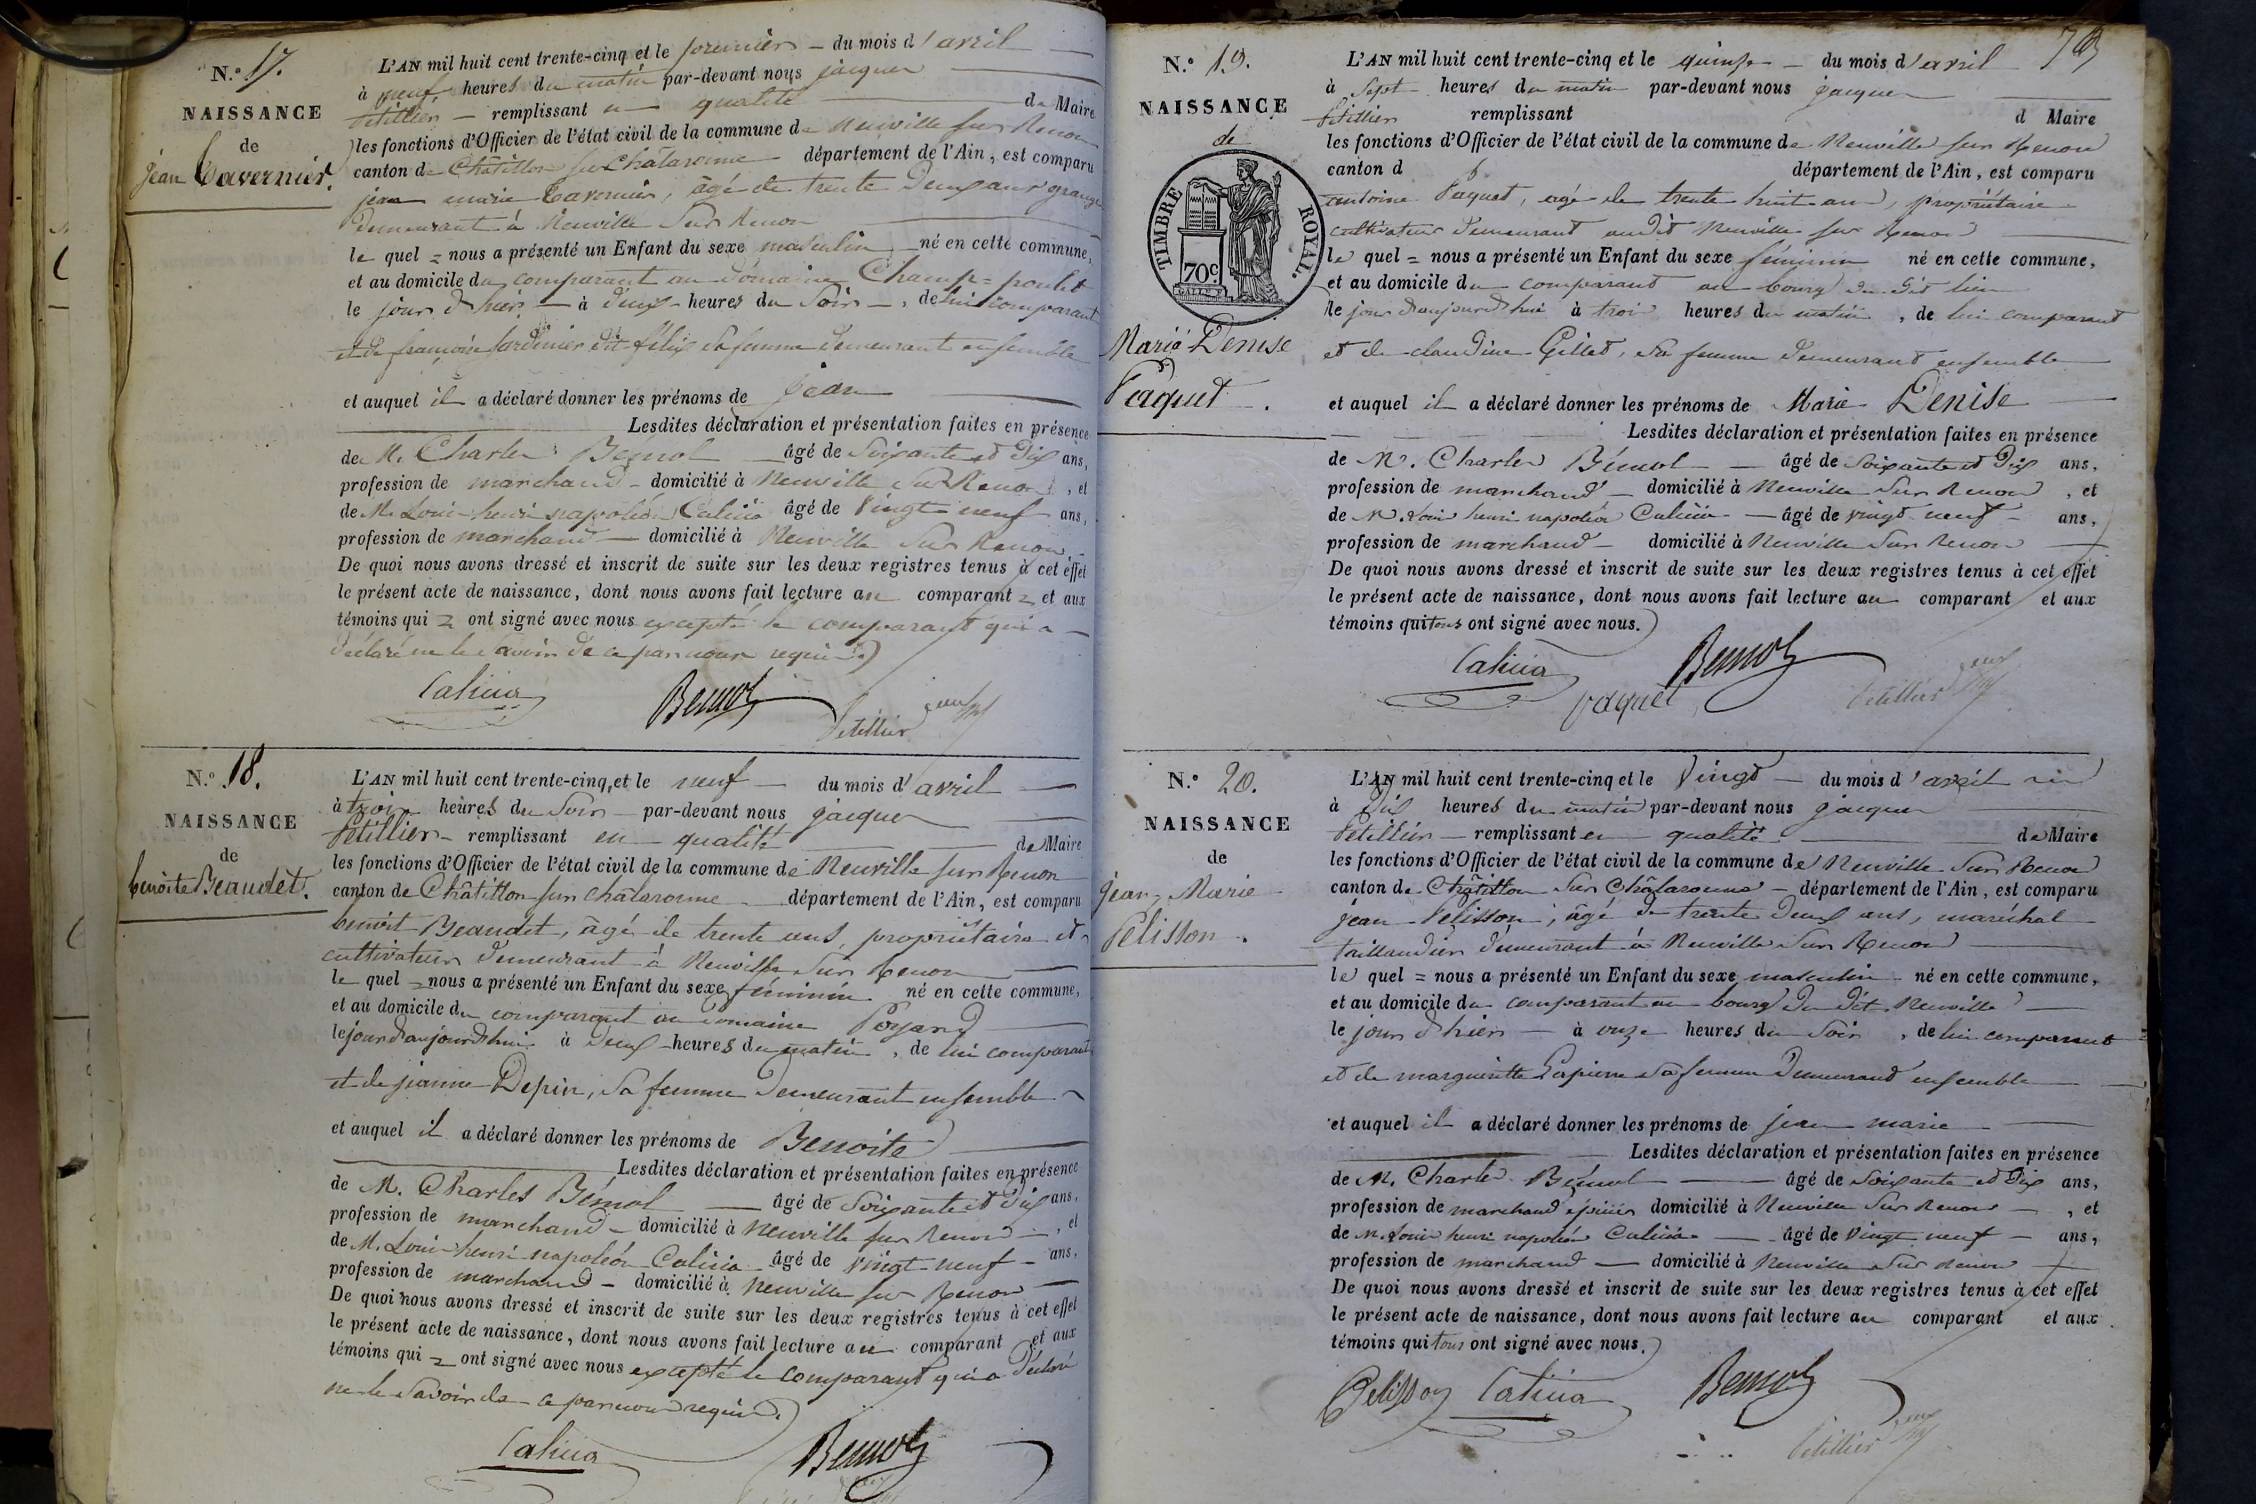 N.º 17.
NAISSANCE
de
jean Tavernier.
L'AN mil huit cent trente-cinq et le premier du mois d'avril
à neuf heures du matin par-devant nous jacques
Petillier remplissant en qualité de Maire
les fonctions d'Officier de l'état civil de la commune de Neuville sur Renon
canton de Châtillon sur Châlaronne département de l'Ain, est comparu
jean marie Tavernier, âgé de trente deux ans granger
demeurant à Neuville Sur Renon
le quel = nous a présenté un Enfant du sexe masculin né en cette commune,
et au domicile du comparant au domaine Champ=poulet
le jour d'hier à deux heures du Soir, de lui comparant
et de françoise Jardinier dit félix sa femme demeurant ensemble
et auquel il a déclaré donner les prénoms de jean
Lesdites déclaration et présentation faites en présence
de M. Charles Bémol âgé de Soixante et Dix ans,
profession de marchand domicilié à Neuville Sur Renon, et
de M. Louis henri napoléon Calicia âgé de Vingt neuf ans,
profession de marchand domicilié à Neuville Sur Renon
De quoi nous avons dressé et inscrit de suite sur les deux registres tenus à cet effet
le présent acte de naissance, dont nous avons fait lecture au comparant et aux
témoins qui ont signé avec nous excepté le comparant qui a
déclaré ne le savoir de ce par nous requis.
Calicia Bemol Petillier
N.º 18.
NAISSANCE
de
benoite Beaudet.
L'AN mil huit cent trente-cinq, et le neuf du mois d'avril
à trois heures du Soir par-devant nous jacques
Petillier remplissant en qualité de Maire
les fonctions d'Officier de l'état civil de la commune de Neuville sur Renon
canton de Châtillon sur châlaronne département de l'Ain, est comparu
benoit Beaudet, âgé de trente ans, propriétaire et
cultivateur demeurant à Neuville Sur Renon
le quel nous a présenté un Enfant du sexe féminin né en cette commune,
et au domicile du comparant au domaine Poyard
le jour d'aujourd'hui à deux heures du matin, de lui comparant
et de jeanne Depin, sa femme demeurant ensemble
et auquel il a déclaré donner les prénoms de Benoite
Lesdites déclaration et présentation faites en présence
de M. Charles Bémol âgé de Soixante et Dix ans,
profession de marchand domicilié à Neuville sur Renon, et
de M. Louis henri napoléon Calicia âgé de vingt neuf ans,
profession de marchand domicilié à Neuville sur Renon
De quoi nous avons dressé et inscrit de suite sur les deux registres tenus à cet effet
le présent acte de naissance, dont nous avons fait lecture au comparant et aux
témoins qui ont signé avec nous excepté le comparant qui a déclaré
ne le Savoir de ce par nous requis.
Calicia Bemol
N.º 19.
NAISSANCE
de
TIMBRE ROYAL.
70c
Marie Denise
Paquet.
L'AN mil huit cent trente-cinq et le quinze du mois d'avril
à Sept heures du matin par-devant nous jacques
Petillier remplissant d Maire
les fonctions d'Officier de l'état civil de la commune de Neuville sur Renon
canton d département de l'Ain, est comparu
antoine Paquet, agé de trente huit ans, propriétaire
cultivateur demeurant audit Neuville sur Renon
le quel = nous a présenté un Enfant du sexe féminin né en cette commune,
et au domicile du comparant au bourg du dit lieu
le jour d'aujourd'hui à trois heures du matin, de lui comparant
et de claudine Gillet, sa femme demeurant ensemble
et auquel il a déclaré donner les prénoms de Marie Denise
Lesdites déclaration et présentation faites en présence
de M. Charles Bémol âgé de Soixante et Dix ans,
profession de marchand domicilié à Neuville Sur Renon, et
de M. Louis henri napoléon Calicia âgé de vingt neuf ans,
profession de marchand domicilié à Neuville Sur Renon
De quoi nous avons dressé et inscrit de suite sur les deux registres tenus à cet effet
le présent acte de naissance, dont nous avons fait lecture au comparant et aux
témoins qui tous ont signé avec nous.
Calicia Bemol
paquet Petillier
N.º 20.
NAISSANCE
de
jean, Marie
Pelisson.
L'AN mil huit cent trente-cinq et le Vingt du mois d'avril
à Dix heures du matin par-devant nous jacques
Petillier remplissant en qualité de Maire
les fonctions d'Officier de l'état civil de la commune de Neuville Sur Renon
canton de Châtillon Sur Châlaronne département de l'Ain, est comparu
jean Pelisson, âgé de trente deux ans, maréchal
taillandier demeurant à Neuville Sur Renon
le quel = nous a présenté un Enfant du sexe masculin né en cette commune,
et au domicile du comparant au bourg du dit Neuville
le jour d'hier à onze heures du Soir, de lui comparant
et de margueritte Lapierre sa femme demeurant ensemble
et auquel il a déclaré donner les prénoms de jean marie
Lesdites déclaration et présentation faites en présence
de M. Charles Bémol âgé de Soixante et Dix ans,
profession de marchand épicier domicilié à Neuville Sur Renon, et
de M. Louis henri napoléon Calicia âgé de Vingt neuf ans,
profession de marchand domicilié à Neuville Sur Renon
De quoi nous avons dressé et inscrit de suite sur les deux registres tenus à cet effet
le présent acte de naissance, dont nous avons fait lecture au comparant et aux
témoins qui tous ont signé avec nous.
Pelisson Calicia Bemol
Petillier